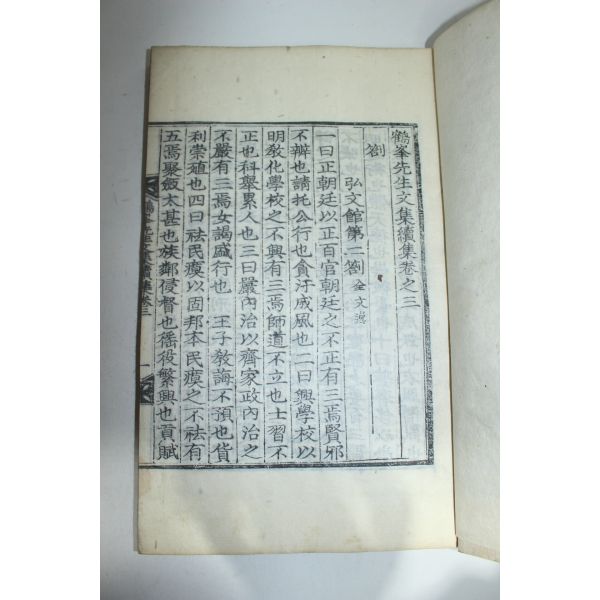 鶴峯先生文集續集卷之三
劄
弘文館第二劄
一曰正朝廷以正百官朝廷之不正有三焉賢邪
不辨也請托公行也貪汙成風也二曰興學校以
明敎化學校之不興有三焉師道不立也士習不
正也科舉累人也三曰嚴內治以齊家政內治之
不嚴有三焉女謁盛行也王子敎誨不預也貨
利崇殖也四曰祛民瘼以固邦本民瘼之不祛有
五焉聚斂太甚也族鄰侵督也徭役繁興也貢賦
鶴峯先生文集續集卷三 一